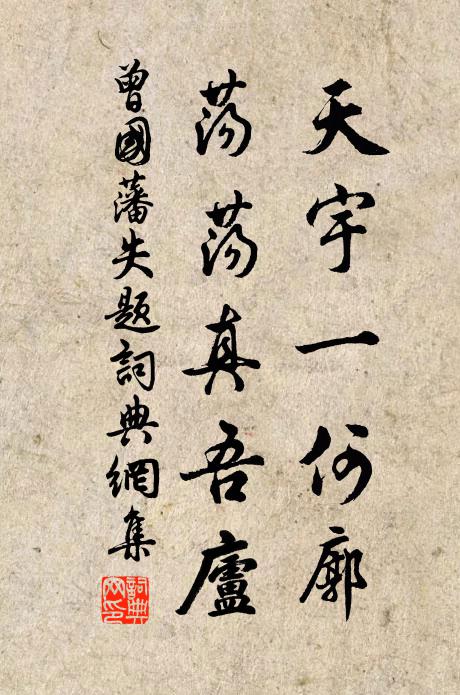 天宇一何廓
蕩蕩真吾廬
曾國藩失題詞典網集
詞典網印